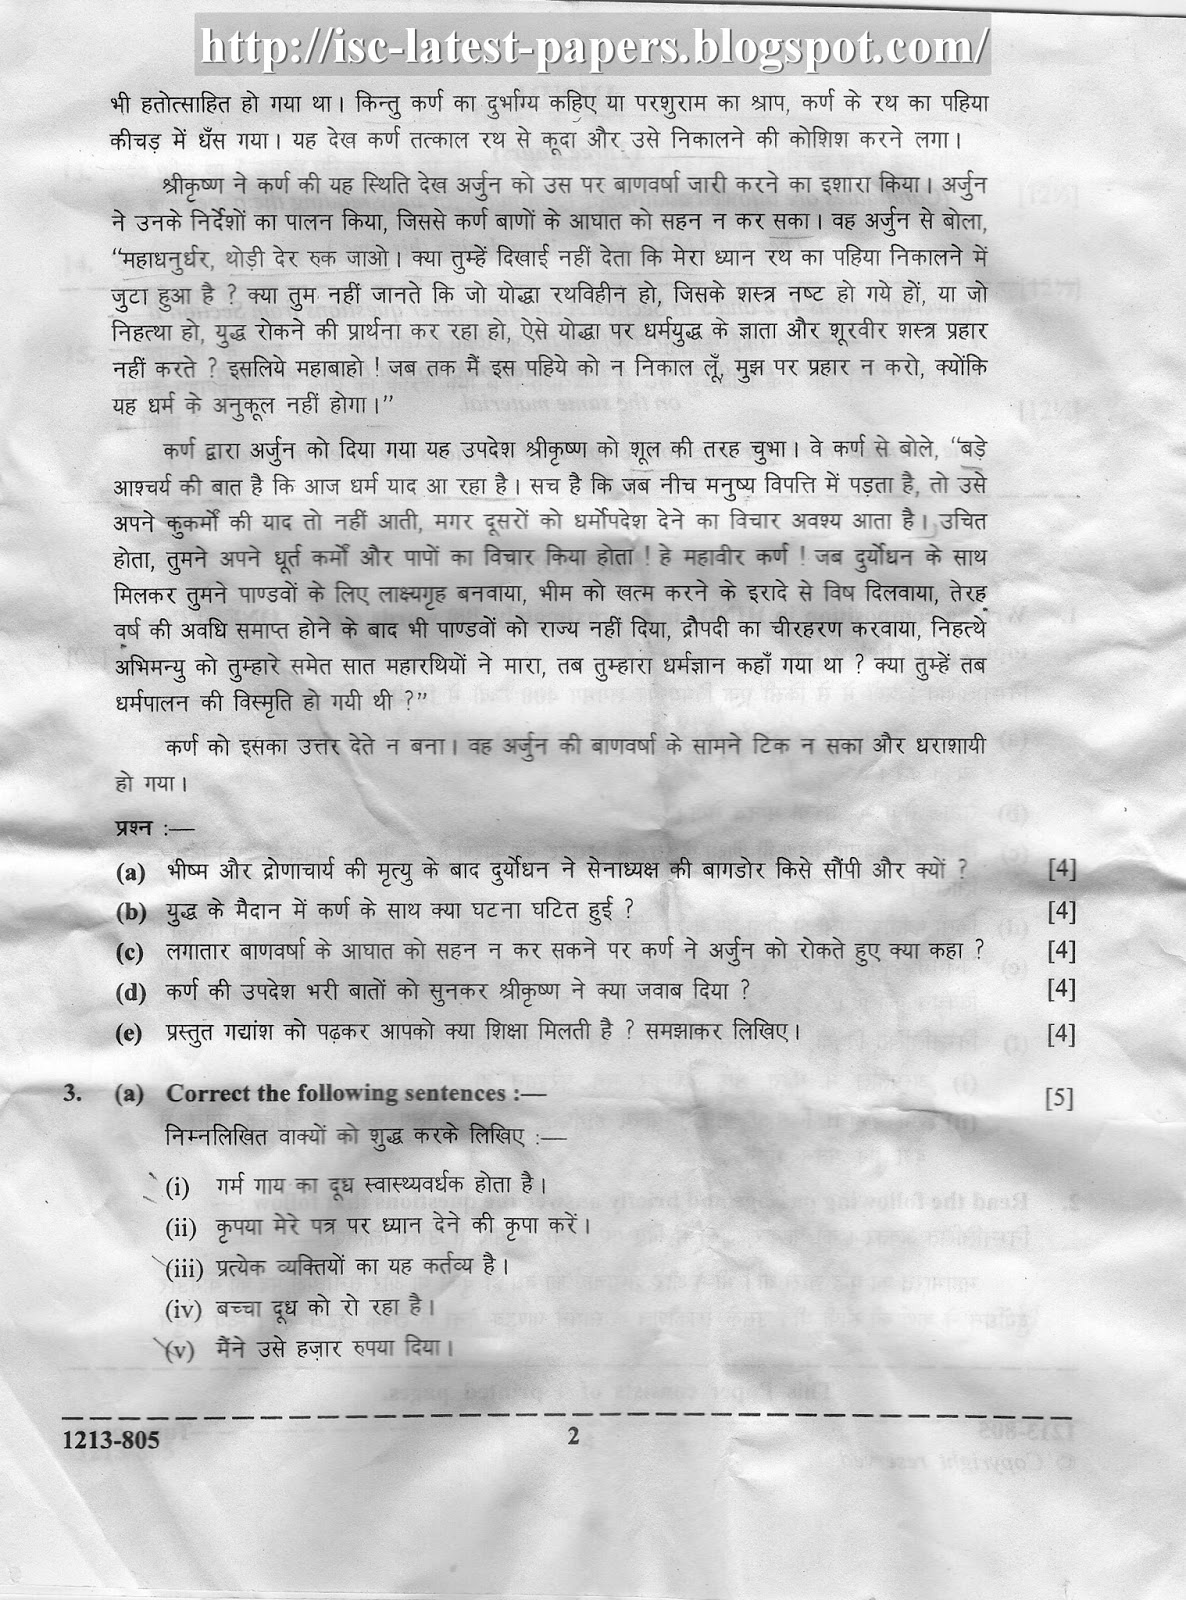 http://isc-latest-papers.blogspot.com/
भी हतोत्साहित हो गया था। किन्तु कर्ण का दुर्भाग्य कहिए या परशुराम का श्राप, कर्ण के रथ का पहिया
कीचड़ में धँस गया। यह देख कर्ण तत्काल रथ से कूदा और उसे निकालने की कोशिश करने लगा।
श्रीकृष्ण ने कर्ण की यह स्थिति देख अर्जुन को उस पर बाणवर्षा जारी करने का इशारा किया। अर्जुन
ने उनके निर्देशों का पालन किया, जिससे कर्ण बाणों के आघात को सहन न कर सका। वह अर्जुन से बोला,
“महाधनुर्धर, थोड़ी देर रुक जाओ। क्या तुम्हें दिखाई नहीं देता कि मेरा ध्यान रथ का पहिया निकालने में
जुटा हुआ है ? क्या तुम नहीं जानते कि जो योद्धा रथविहीन हो, जिसके शस्त्र नष्ट हो गये हों, या जो
निहत्था हो, युद्ध रोकने की प्रार्थना कर रहा हो, ऐसे योद्धा पर धर्मयुद्ध के ज्ञाता और शूरवीर शस्त्र प्रहार
नहीं करते ? इसलिये महाबाहो ! जब तक मैं इस पहिये को न निकाल लूँ, मुझ पर प्रहार न करो, क्योंकि
यह धर्म के अनुकूल नहीं होगा।”
कर्ण द्वारा अर्जुन को दिया गया यह उपदेश श्रीकृष्ण को शूल की तरह चुभा। वे कर्ण से बोले, “बड़े
आश्चर्य की बात है कि आज धर्म याद आ रहा है। सच है कि जब नीच मनुष्य विपत्ति में पड़ता है, तो उसे
अपने कुकर्मों की याद तो नहीं आती, मगर दूसरों को धर्मोपदेश देने का विचार अवश्य आता है। उचित
होता, तुमने अपने धूर्त कर्मों और पापों का विचार किया होता ! हे महावीर कर्ण ! जब दुर्योधन के साथ
मिलकर तुमने पाण्डवों के लिए लाक्ष्यगृह बनवाया, भीम को खत्म करने के इरादे से विष दिलवाया, तेरह
वर्ष की अवधि समाप्त होने के बाद भी पाण्डवों को राज्य नहीं दिया, द्रौपदी का चीरहरण करवाया, निहत्थे
अभिमन्यु को तुम्हारे समेत सात महारथियों ने मारा, तब तुम्हारा धर्मज्ञान कहाँ गया था ? क्या तुम्हें तब
धर्मपालन की विस्मृति हो गयी थी ?”
कर्ण को इसका उत्तर देते न बना। वह अर्जुन की बाणवर्षा के सामने टिक न सका और धराशायी
हो गया।
प्रश्न :—
(a) भीष्म और द्रोणाचार्य की मृत्यु के बाद दुर्योधन ने सेनाध्यक्ष की बागडोर किसे सौंपी और क्यों ? [4]
(b) युद्ध के मैदान में कर्ण के साथ क्या घटना घटित हुई ? [4]
(c) लगातार बाणवर्षा के आघात को सहन न कर सकने पर कर्ण ने अर्जुन को रोकते हुए क्या कहा ? [4]
(d) कर्ण की उपदेश भरी बातों को सुनकर श्रीकृष्ण ने क्या जवाब दिया ? [4]
(e) प्रस्तुत गद्यांश को पढ़कर आपको क्या शिक्षा मिलती है ? समझाकर लिखिए। [4]
3. (a) Correct the following sentences :— [5]
निम्नलिखित वाक्यों को शुद्ध करके लिखिए :—
(i) गर्म गाय का दूध स्वास्थ्यवर्धक होता है।
(ii) कृपया मेरे पत्र पर ध्यान देने की कृपा करें।
(iii) प्रत्येक व्यक्तियों का यह कर्तव्य है।
(iv) बच्चा दूध को रो रहा है।
(v) मैंने उसे हज़ार रुपया दिया।
1213-805 2